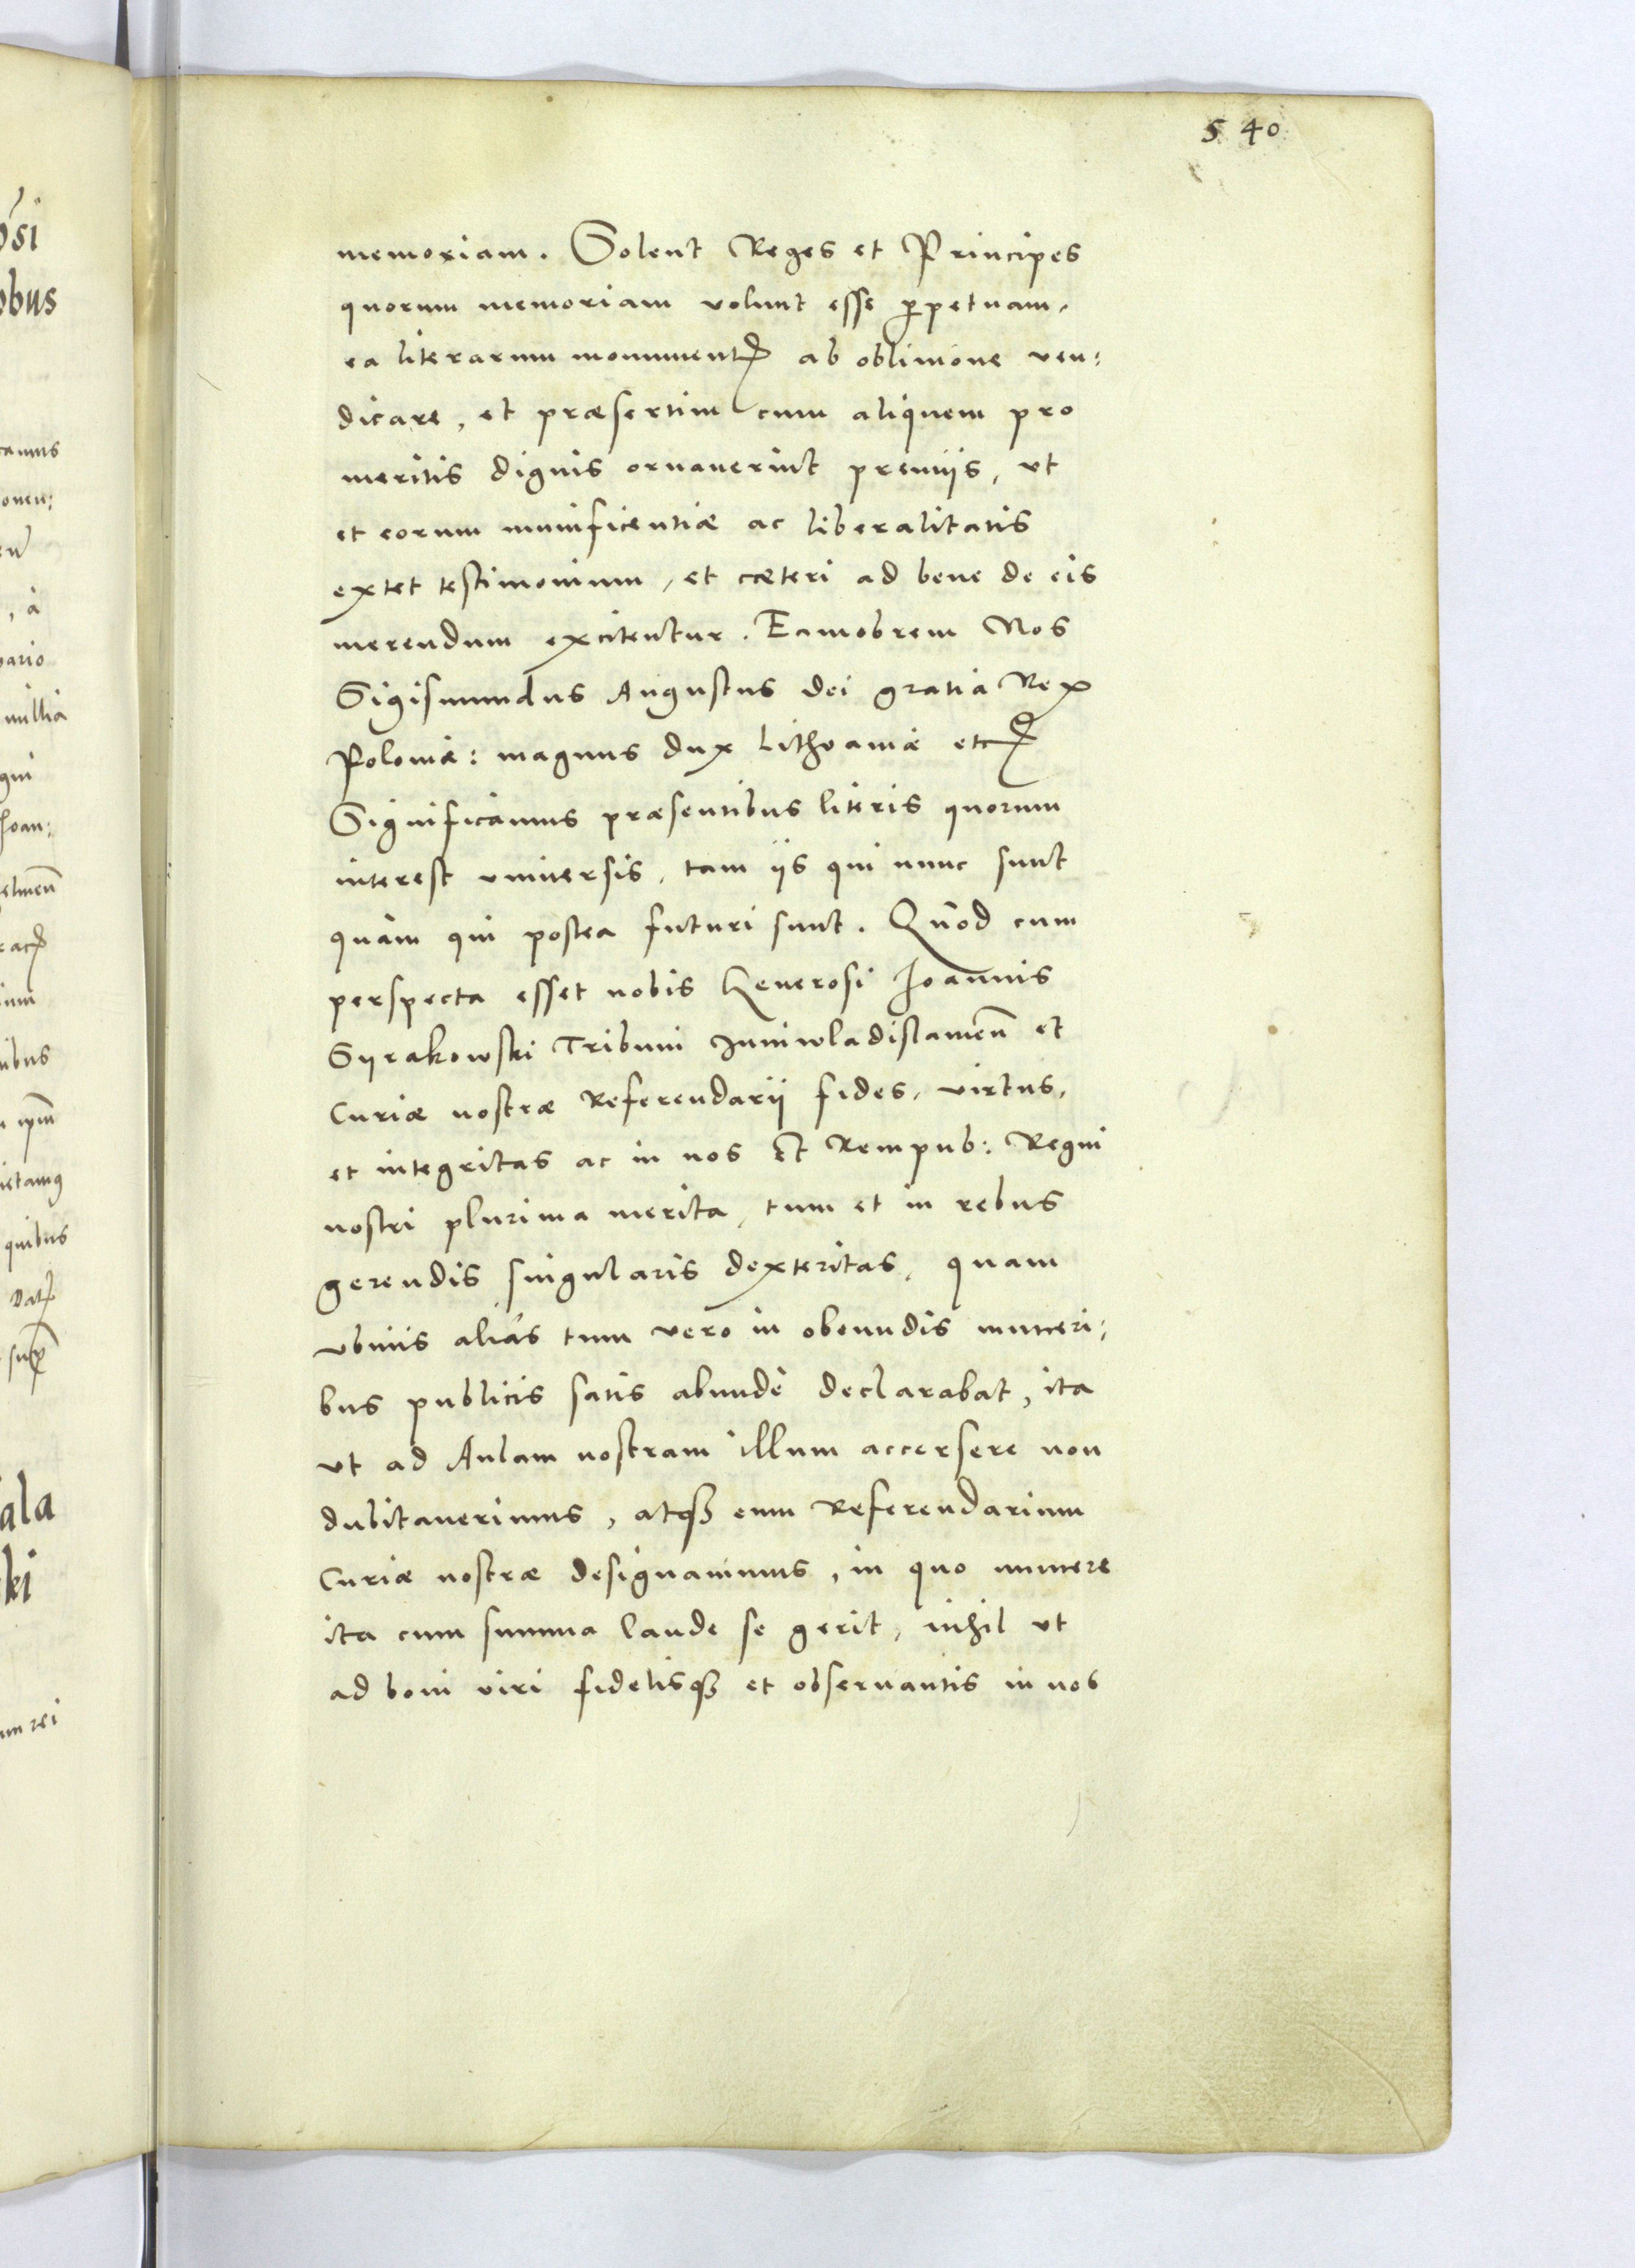 5 40
memoriam. Solent Reges et Principes
quorum memoriam volunt esse ꝑpetuam,
ea literarum monumentꝭ ab obliuione ven:
dicare, et præsertim cum aliquem pro
meritis dignis ornauerint premijs, vt
et eorum munificentiæ ac liberalitatis
extet testimonium, et cæteri ad bene de eis
merendum excitentur. Eamobrem Nos
Sigismundus Augustus dei gratia Rex
Poloniæ: magnus dux Lithoaniæ etcꝭ
Significamus præsentibus literis quorum
interest vniuersis, tam ijs qui nunc sunt
quàm qui postea futuri sunt. Quod cum
perspecta esset nobis Generosi Joannis
Syrakowski Tribuni Juniwladislauień et
Curiæ nostræ Referendarij fides, virtus,
et integritas ac in nos et Rempub: Regni
nostri plurima merita, tum et in rebus
gerendis singularis dexteritas, quam
vbiuis aliàs tum vero in obeundis muneri:
bus publicis satis abundè declarabat, ita
vt ad Aulam nostram illum accersere non
dubitauerimus, atqꝫ eum Referendarium
Curiæ nostræ designauimus, in quo munere
ita cum summa laude se gerit, nihil vt
ad boni viri fidelisqꝫ et obseruantis in nos